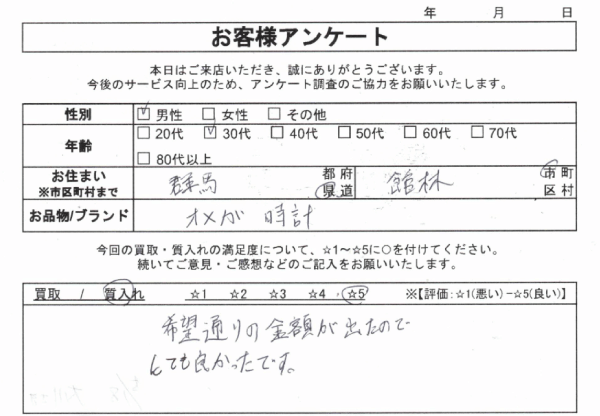 年 月 日
お客様アンケート
本日はご来店いただき、誠にありがとうございます。
今後のサービス向上のため、アンケート調査のご協力をお願いいたします。
性別 ☑男性 □女性 □その他
年齢 □20代 ☑30代 □40代 □50代 □60代 □70代
□80代以上
お住まい ※市区町村まで 群馬 都府県道 館林 市町区村
お品物/ブランド オメガ 時計
今回の買取・質入れの満足度について、☆1～☆5に○を付けてください。
続いてご意見・ご感想などのご記入をお願いいたします。
買取 / 質入れ ☆1 ☆2 ☆3 ☆4 ☆5 ※【評価:☆1(悪い)−☆5(良い)】
希望通りの金額が出たので
とても良かったです。